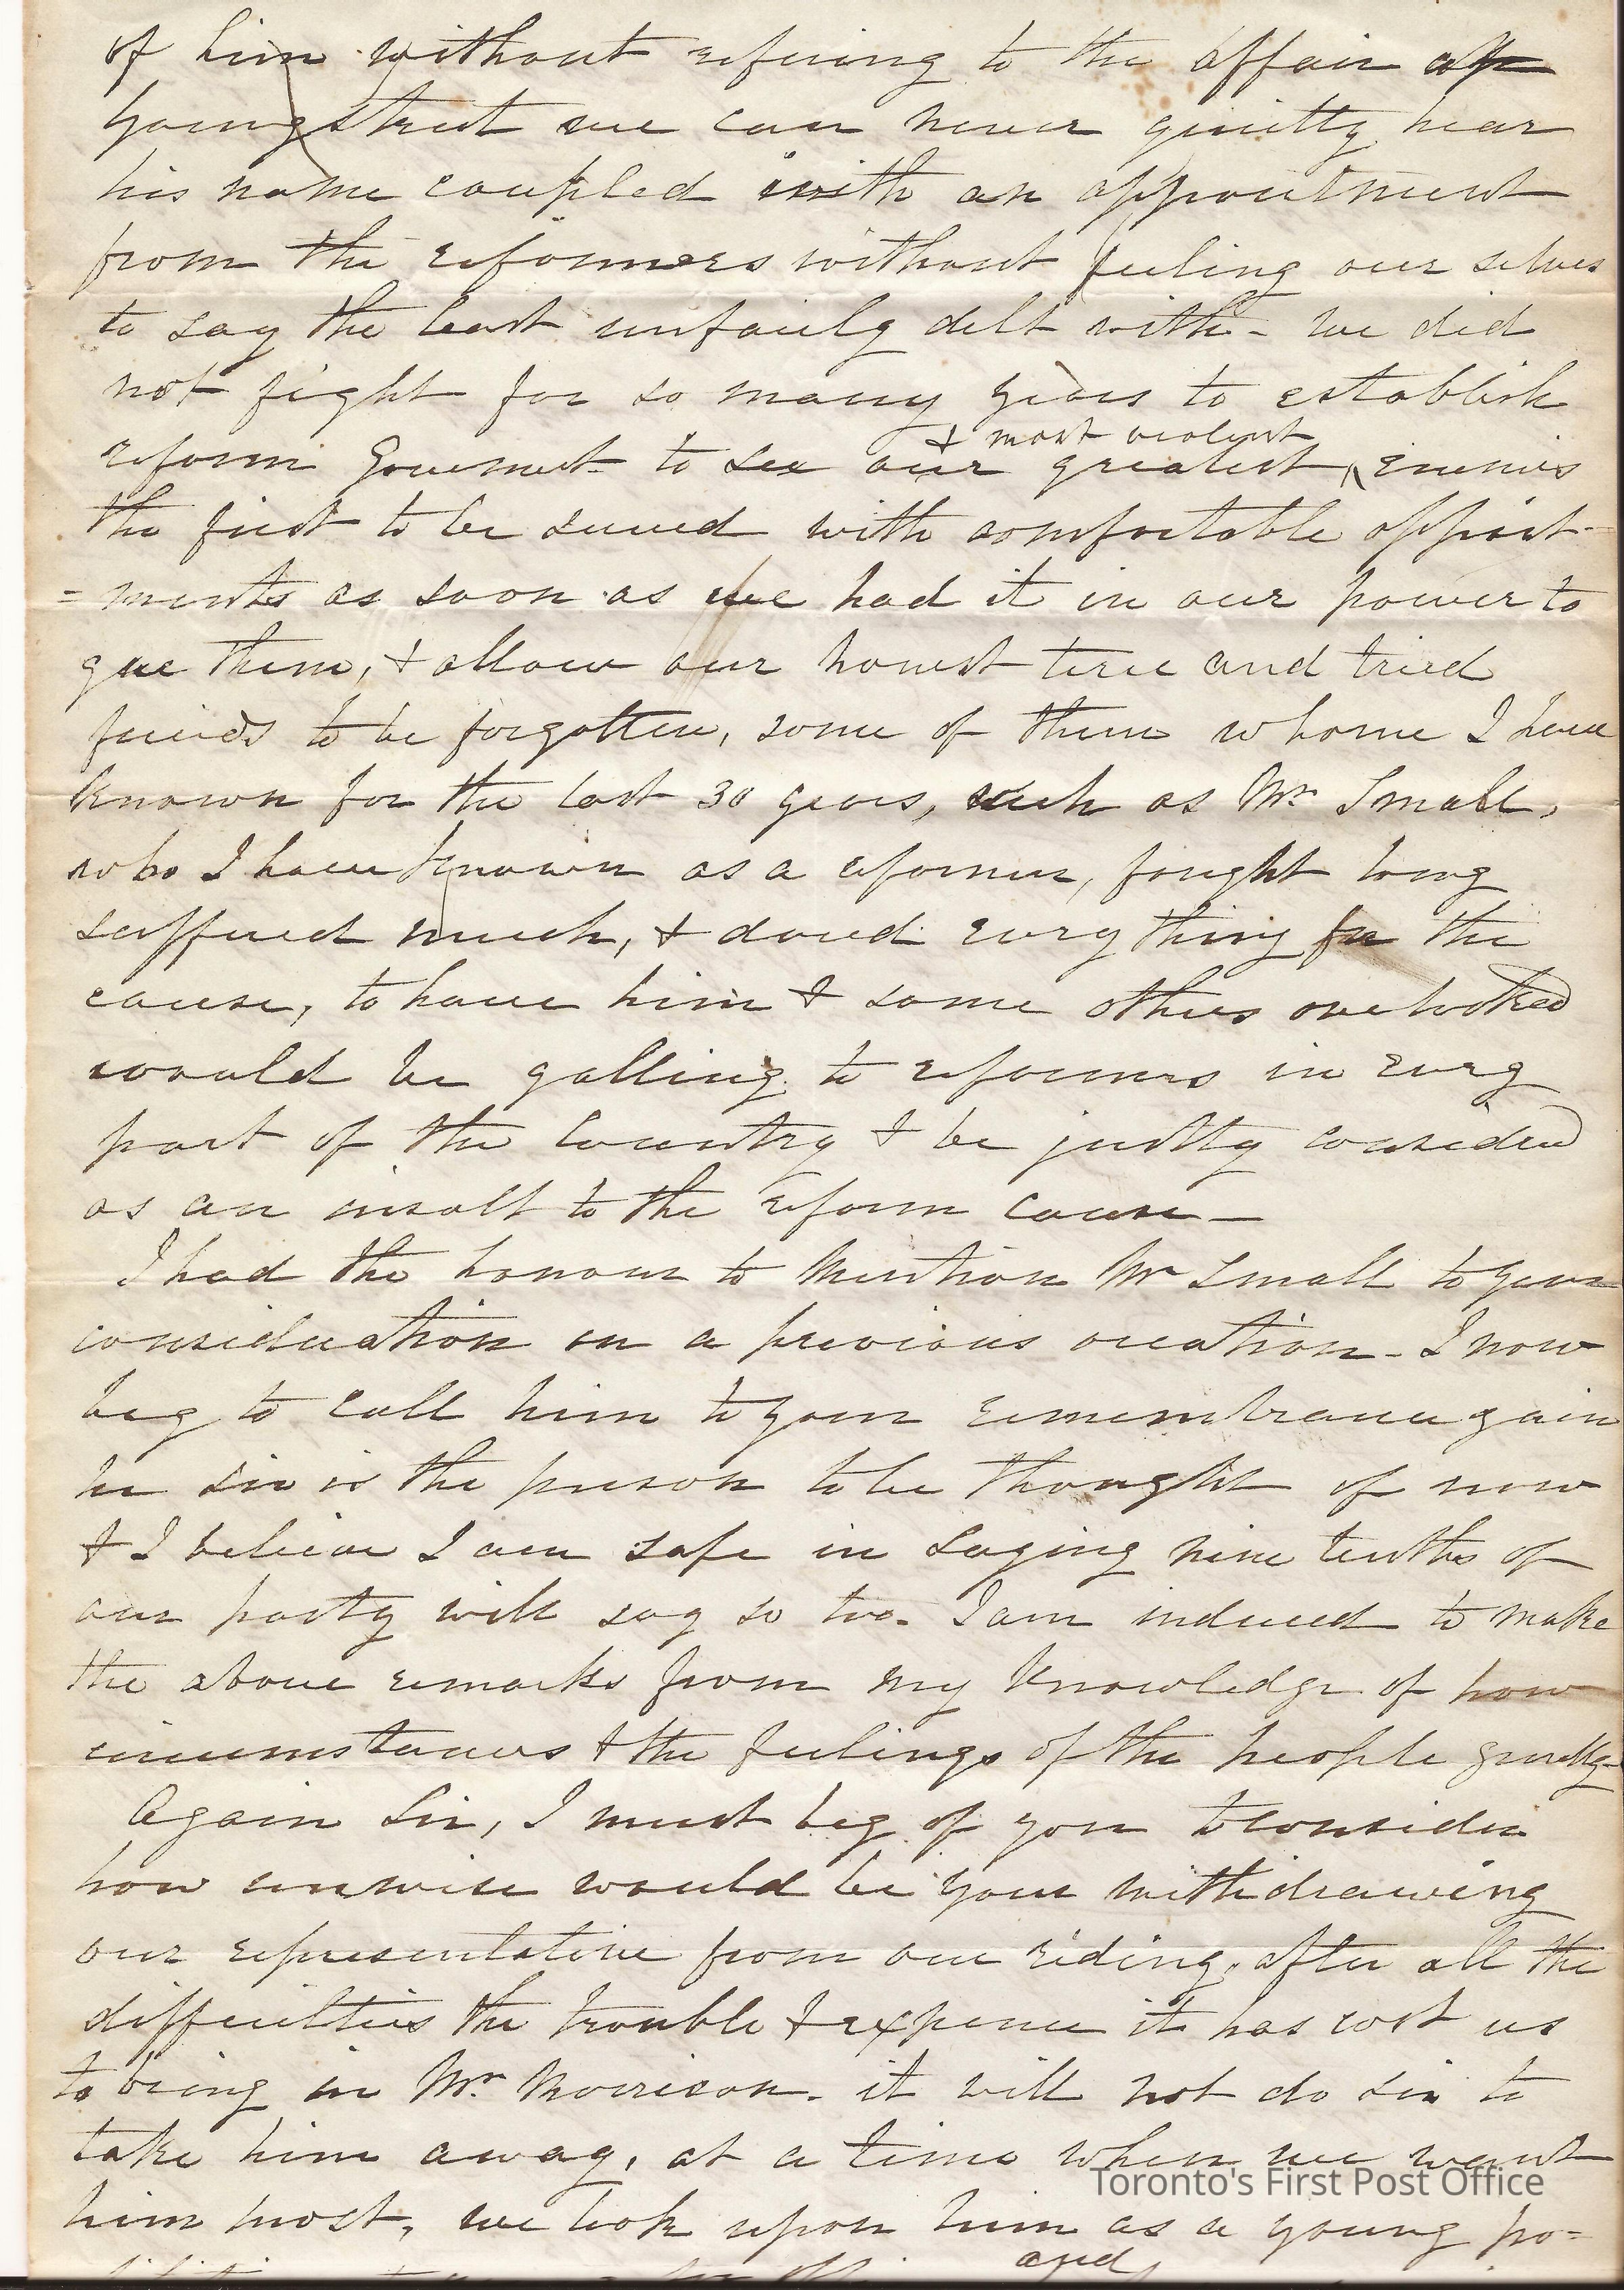 of him without refering to the affair on
Young Street we can never quietly hear
his name coupled with an appointment
from the reformers without feeling our selves
to say the least unfairly delt with - we did
not fight for so many years to establish
& most violent
reform Goverment to see our greatest enemies
the first to be served with comfortable appoint-
= ments as soon as we had it in our power to
give them, & allow our honest true and tried
friends to be forgotten, some of them whome I have
known for the last 30 years, such as Mr Small,
who I have known as a reformer, fought long
suffered much, & dared every thing for the
cause, to have him & some others overlooked
would be galling to reformers in every
part of the Country & be justly considered
as an insult to the reform cause -
I had the honour to Mention Mr Small to your
consideration on a previous occation - I now
beg to call him to your remembrance again
he sir is the person to be thought of now
& I believe I am safe in saying nine tenths of
our party will say so too. I am induced to make
the above remarks from my knowledge of how
circumstances & the feelings of the people
Again Sir, I must beg of you to consider
how unwise would be your withdrawing
our representative from our riding, after all the
difficulties the trouble & expence it has cost us
to bring in Mr Morrison. it will not do sir to
take him away, at a time when we want
him most, we look upon him as a young po=
and
Toronto's First Post Office